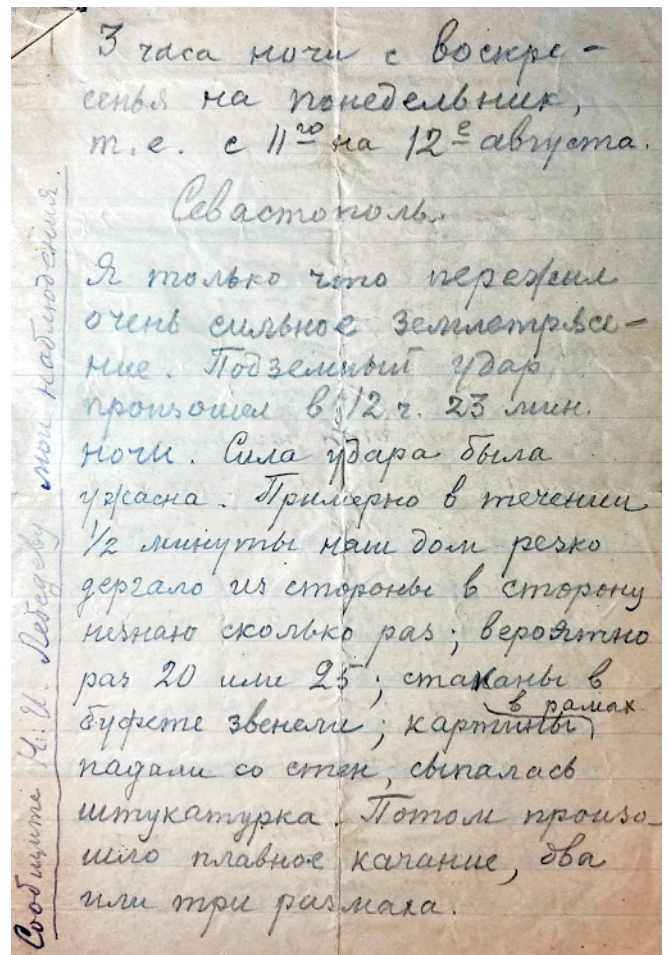 3 часа ночи с воскре-
сенья на понедельник,
т.е. с 11го на 12е августа.
Севастополь.
Я только что пережил
очень сильное землетрясе-
ние. Подземный удар
произошел в 12 ч. 23 мин.
ночи. Сила удара была
ужасна. Примерно в течении
1/2 минуты наш дом резко
дергало из стороны в сторону
незнаю сколько раз; вероятно
раз 20 или 25; стаканы в
буфете звенели; картины
в рамах
падали со стен, сыпалась
штукатурка. Потом произо-
шло плавное качание, два
или три размаха.
Сообщите Н. И. Лебедеву мои наблюдения.